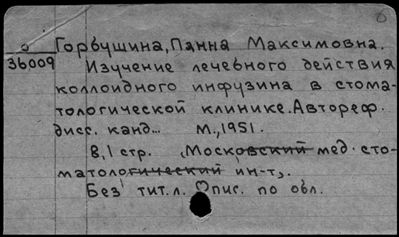 Горбушина, Панна Максимовна.
36009
Изучение лечебного действия
коллоидного инфузина в стома-
тологической клинике. Автореф.
дисс. канд... М., 1951.
8,1 стр. (Московский мед. сто-
матологический ин-т).
Без тит. л. Опис. по обл.